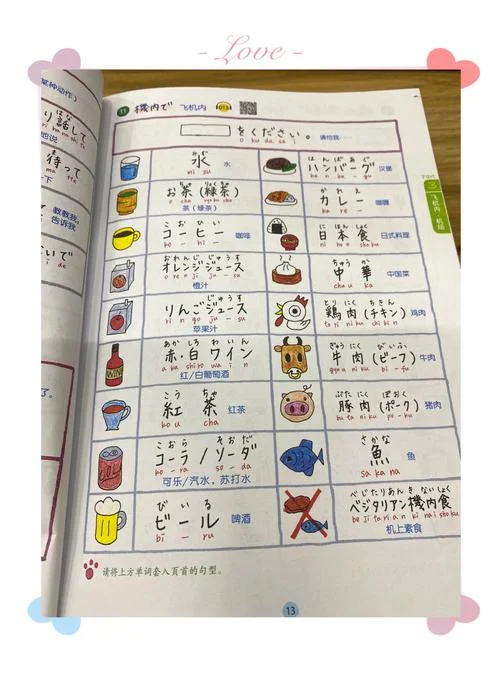 - Love -
某种动作)
り話して
他说
待って
一下
教教我。
告诉我
いで
了。
11 機内で 飞机内 013
をください。 请给我……
o ku da sa i
みず
水 水
mi zu
はんばあぐ
ハンバーグ 汉堡
ha n ba - gu
お茶(緑茶)
茶(绿茶)
かれえ
カレー 咖喱
ka re -
こおひい
コーヒー 咖啡
ko - hi -
に ほんしょく
日本食 日式料理
ni ho n sho ku
おれんじじゅうす
オレンジジュース
o re n ji ju - su
橙汁
ちゅう か
中華 中国菜
chu u ka
りんごジュース
ri n go ju - su
苹果汁
とり にく ちきん
鶏肉(チキン) 鸡肉
to ri ni ku chi ki n
あか しろ わいん
赤・白ワイン
a ka shi ro wa i n
红/白葡萄酒
ぎゅう にく びいふ
牛肉(ビーフ) 牛肉
gyu u ni ku bi - fu
こう ちゃ
紅茶 红茶
ko u cha
ぶた にく ぽおく
豚肉(ポーク) 猪肉
bu ta ni ku po - ku
こおら そおだ
コーラ/ソーダ
ko - ra so - da
可乐/汽水,苏打水
さかな
魚 鱼
sa ka na
びいる
ビール 啤酒
bi - ru
べじたりあん き ない しょく
ベジタリアン機内食
be ji ta ri a n ki na i sho ku
机上素食
请将上方单词套入页首的句型。
PART
3
飞机内 机场
13